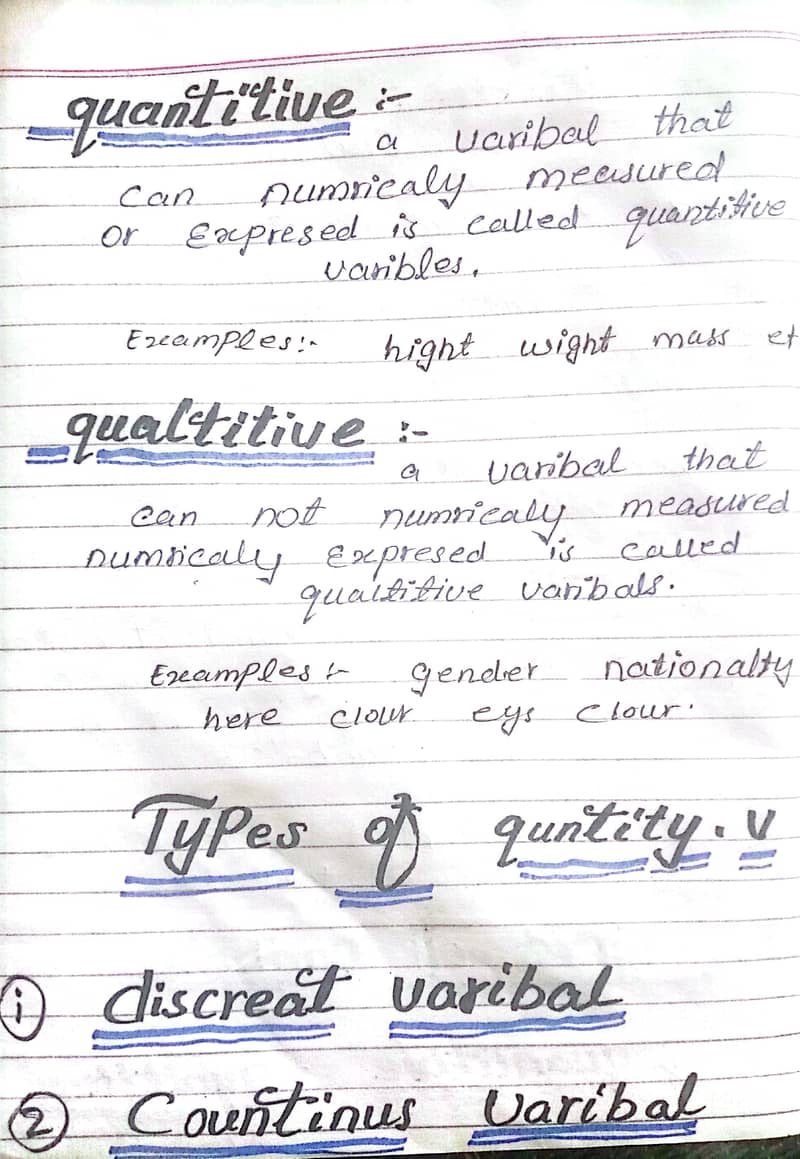 quantitive :-
a varibal that
can numricaly measured
or Expresed is called quantitive
varibles.
Examples:- hight wight mass et
qualtitive :-
a varibal that
can not numricaly measured
numricaly Expresed is called
qualtitive varibals.
Examples :- gender nationalty
here clour eys clour.
Types of quntity. v
i discreat varibal
2 Countinus varibal